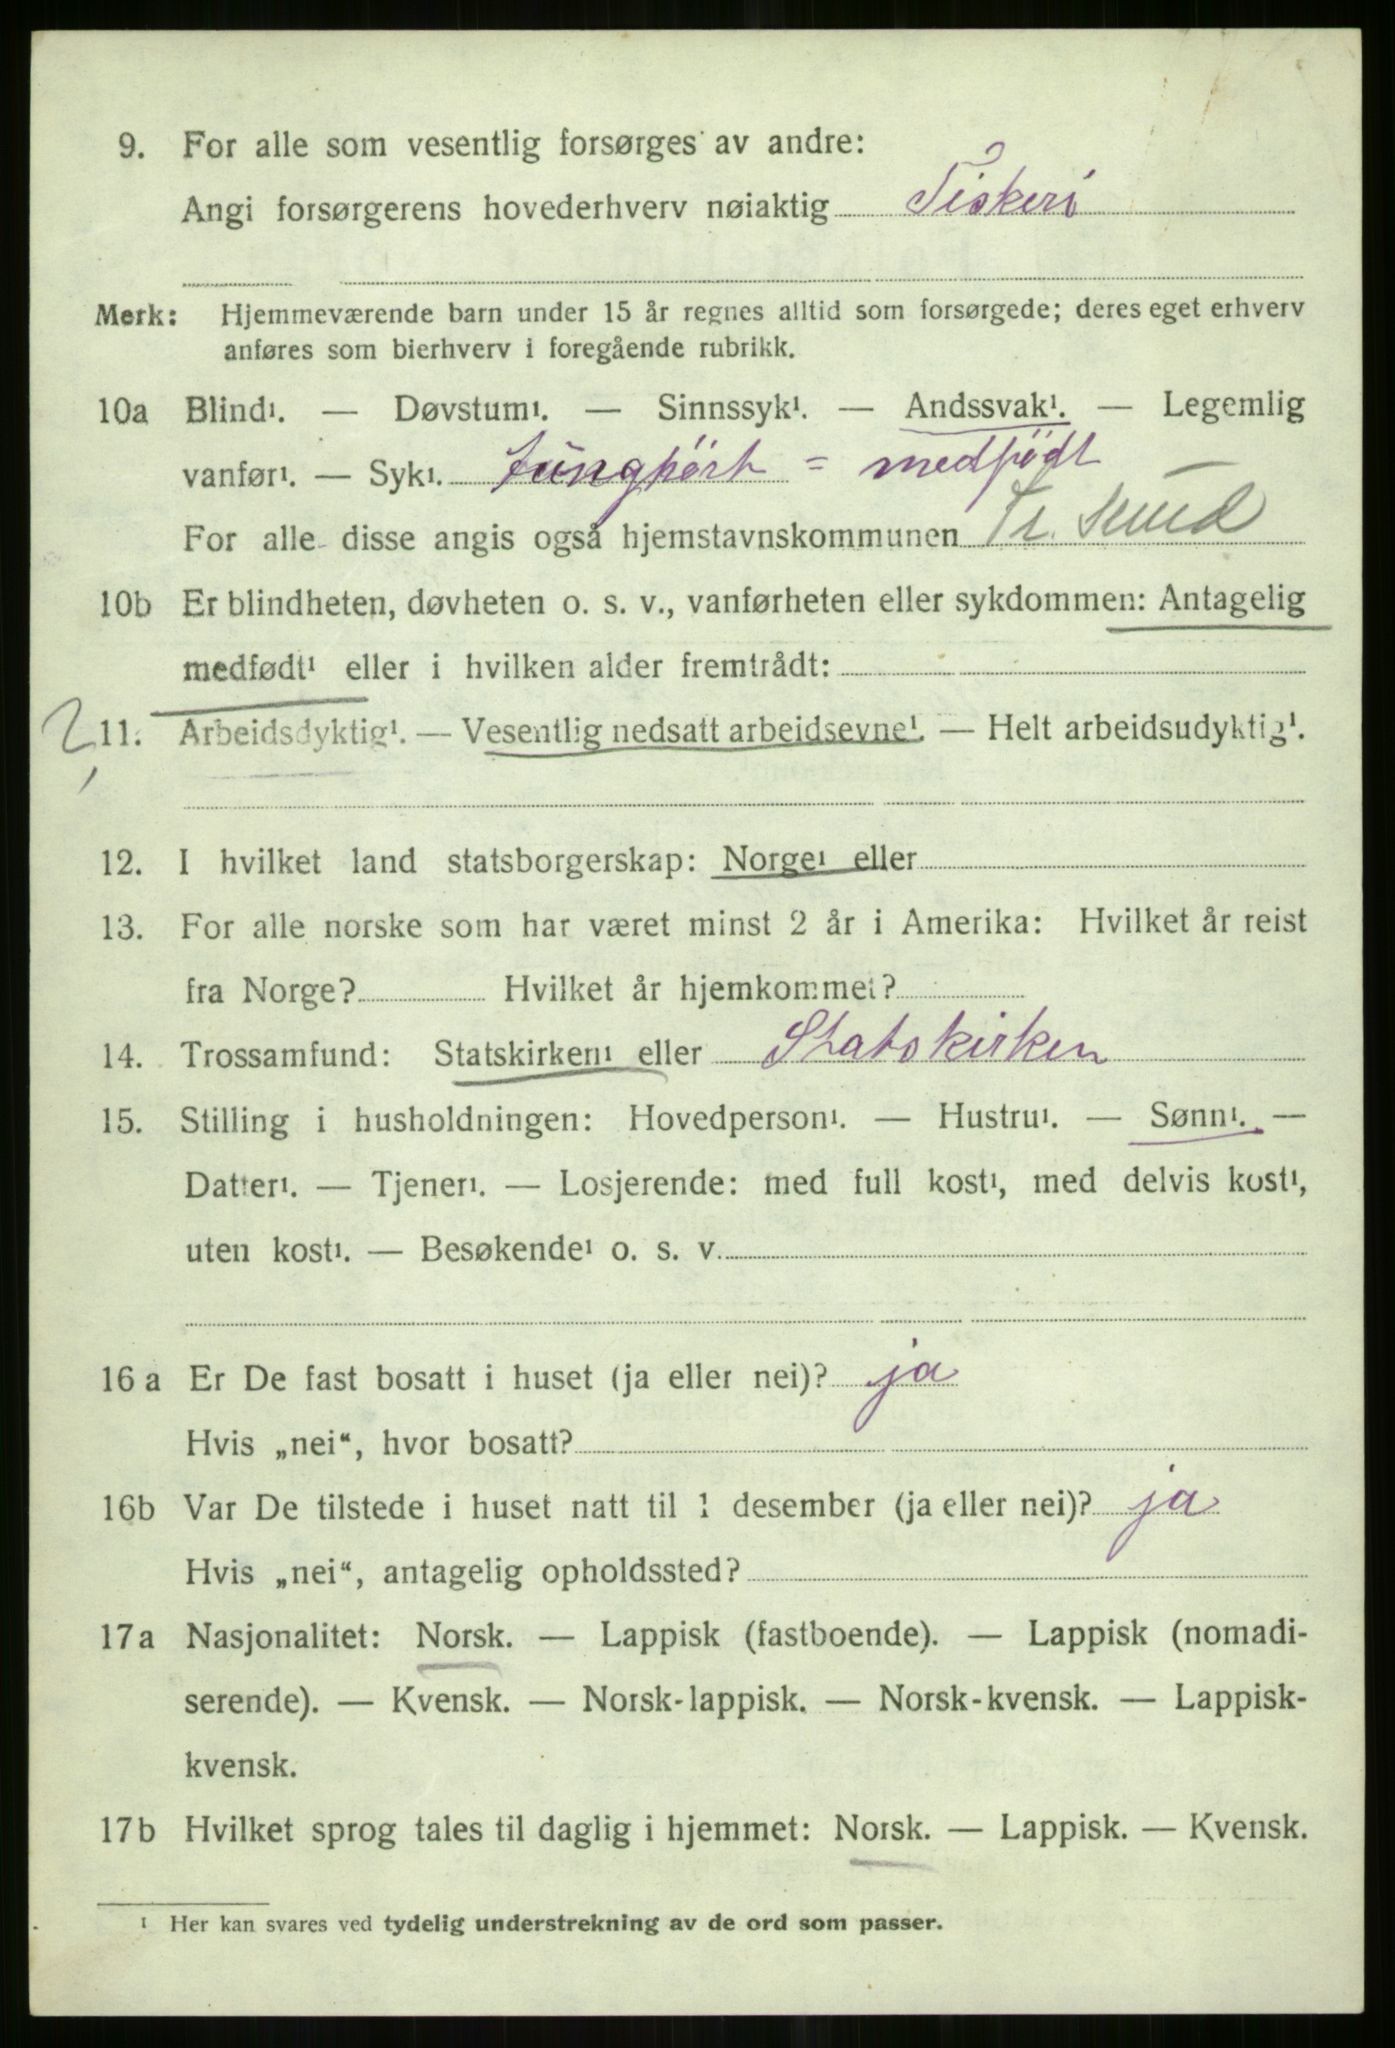 9. For alle som vesentlig forsørges av andre:
Angi forsørgerens hovederhverv nøiaktig Fiskeri
Merk: Hjemmeværende barn under 15 år regnes alltid som forsørgede; deres eget erhverv
anføres som bierhverv i foregående rubrikk.
10a Blind¹. — Døvstum¹. — Sinnssyk¹. — Andssvak¹. — Legemlig
vanfør¹. — Syk¹. tunghørt = medfödt
For alle disse angis også hjemstavnskommunen Tr. sund
10b Er blindheten, døvheten o. s. v., vanførheten eller sykdommen: Antagelig
medfødt¹ eller i hvilken alder fremtrådt:
2, 11. Arbeidsdyktig¹. — Vesentlig nedsatt arbeidsevne¹. — Helt arbeidsudyktig¹.
12. I hvilket land statsborgerskap: Norge¹ eller
13. For alle norske som har været minst 2 år i Amerika: Hvilket år reist
fra Norge? Hvilket år hjemkommet?
14. Trossamfund: Statskirken¹ eller Statskirken
15. Stilling i husholdningen: Hovedperson¹. — Hustru¹. — Sønn¹. —
Datter¹. — Tjener¹. — Losjerende: med full kost¹, med delvis kost¹,
uten kost¹. — Besøkende¹ o. s. v.
16 a Er De fast bosatt i huset (ja eller nei)? ja
Hvis „nei“, hvor bosatt?
16b Var De tilstede i huset natt til 1 desember (ja eller nei)? ja
Hvis „nei“, antagelig opholdssted?
17a Nasjonalitet: Norsk. — Lappisk (fastboende). — Lappisk (nomadi-
serende). — Kvensk. — Norsk-lappisk. — Norsk-kvensk. — Lappisk-
kvensk.
17b Hvilket sprog tales til daglig i hjemmet: Norsk. — Lappisk. — Kvensk.
¹ Her kan svares ved tydelig understrekning av de ord som passer.